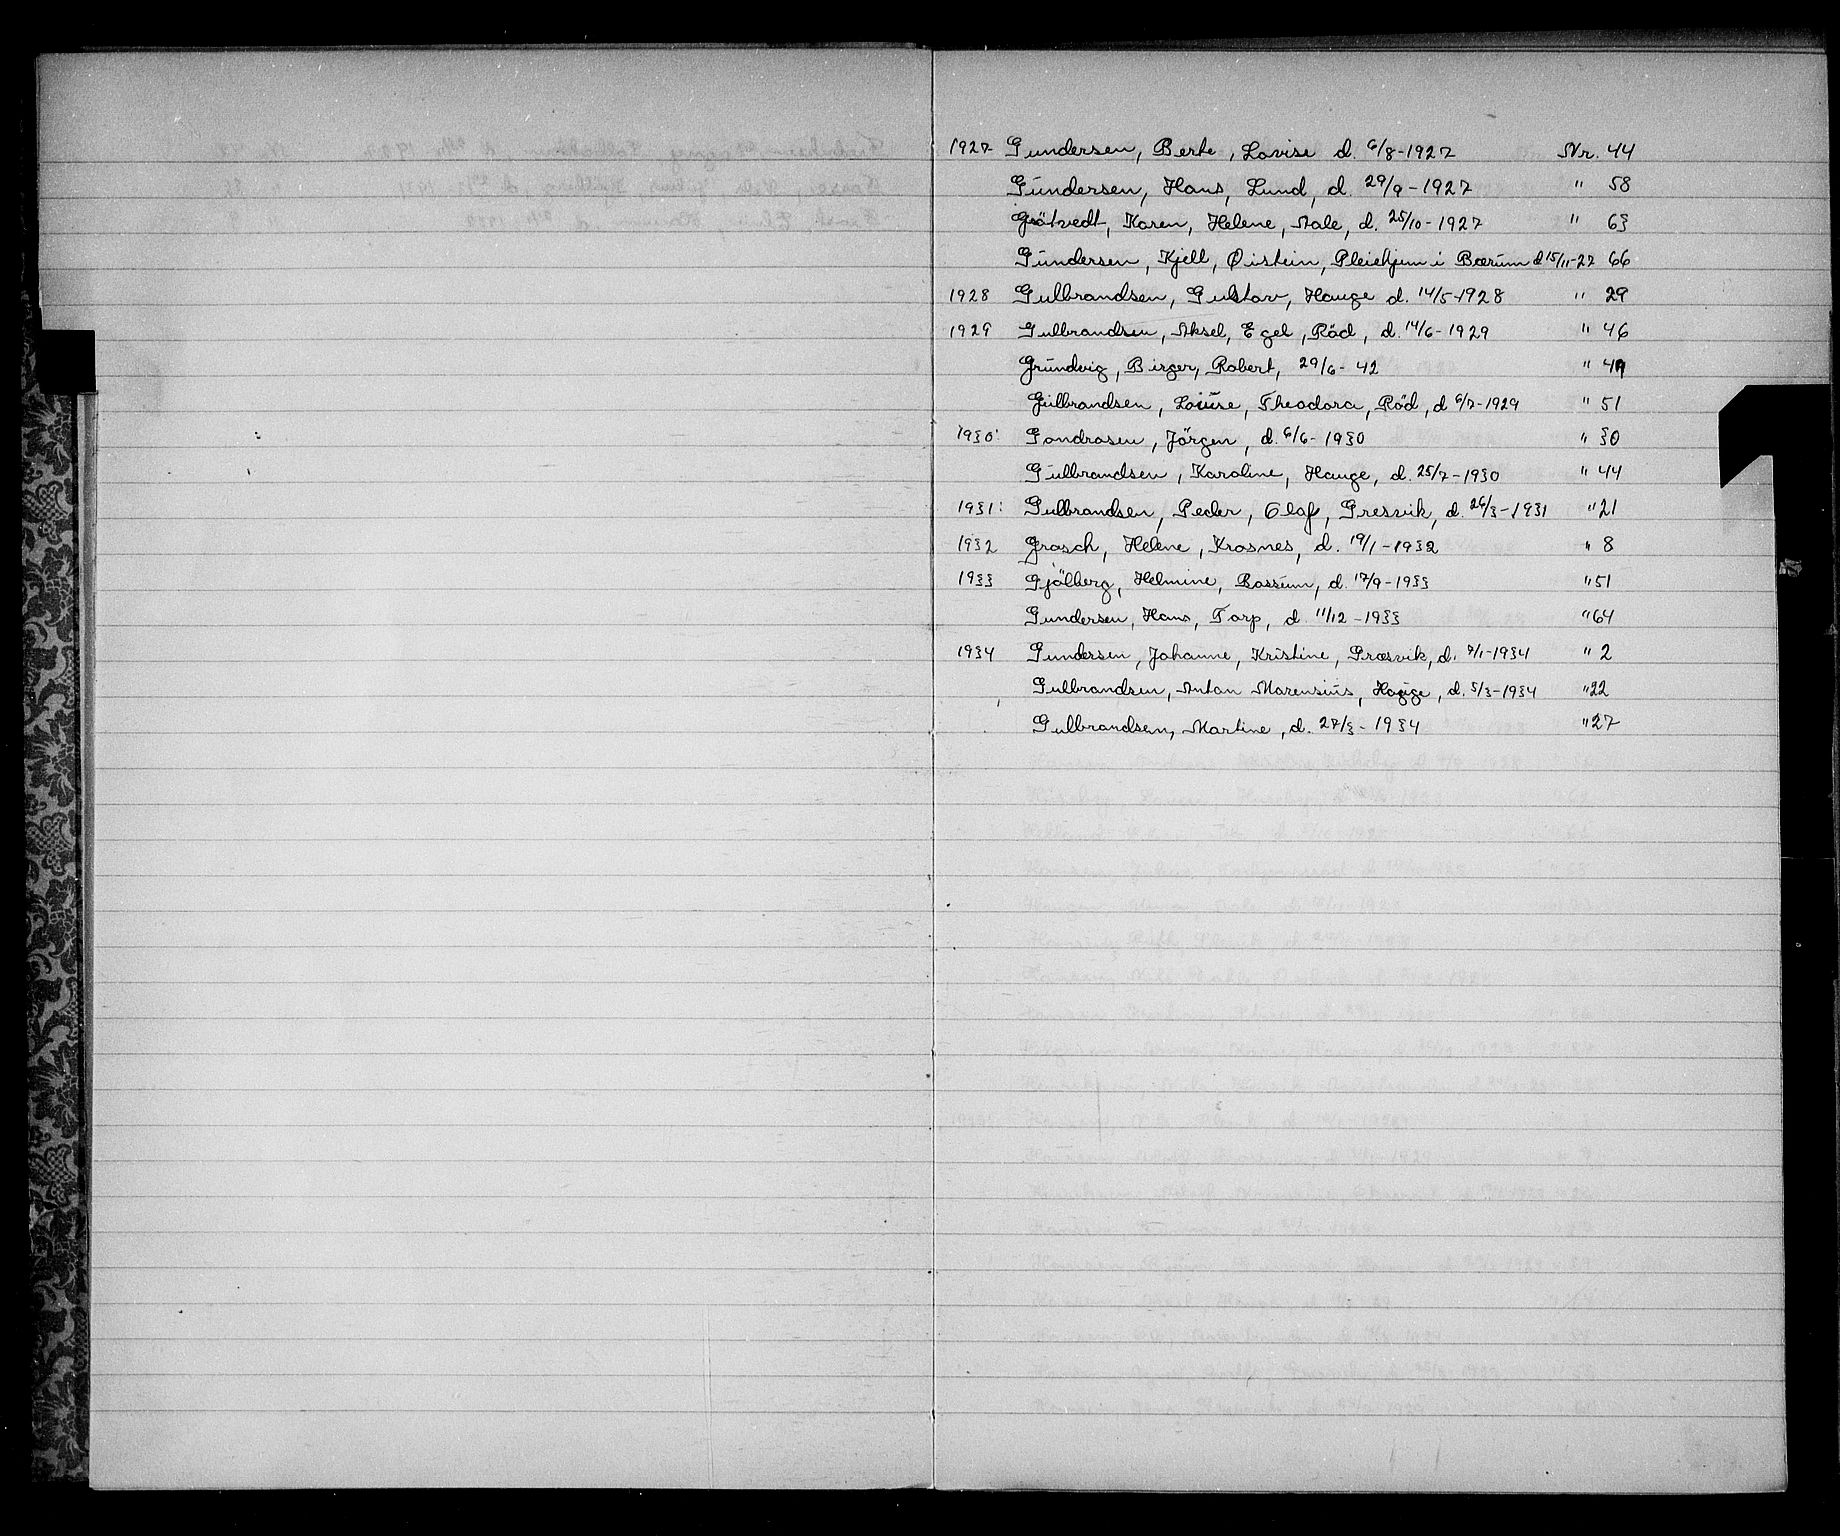 1927 Gundersen, Berte, Lovise d. 6/8-1927 Nr. 44
Gundersen, Hans, Lund, d. 29/9-1927 " 58
Gråtvedt, Karen, Helene, Aale, d. 25/10-1927 " 63
Gundersen, Kjell, Øistein, Pleiehjem i Bærum d 15/11-27 66
1928 Gulbrandsen, Gustav, Hauge d. 14/5-1928 " 29
1929 Gulbrandsen, Aksel, Egel, Röd, d. 14/6-1929 " 46
Grundvig, Birger, Robert, 29/6-42 " 49
Gulbrandsen, Louise, Theodora, Röd, d 6/7-1929 " 51
1930: Gondrosen, Jörgen, d. 6/6-1930 " 30
Gulbrandsen, Karoline, Hauge, d. 25/7-1930 " 44
1931: Gulbrandsen, Peder, Olaf, Gresvik, d. 26/3-1931 " 21
1932 Grasch, Helene, Krosnes, d. 19/1-1932 " 8
1933 Gjölberg, Helmine, Bossum, d. 17/9-1933 " 51
Gundersen, Hans, Torp, d. 11/12-1933 " 64
1934 Gundersen, Johanne, Kristine, Græsvik, d. 7/1-1934 " 2
Gulbrandsen, Anton Marensius, Hauge, d. 5/3-1934 " 22
Gulbrandsen, Martine, d. 27/3-1934 " 27